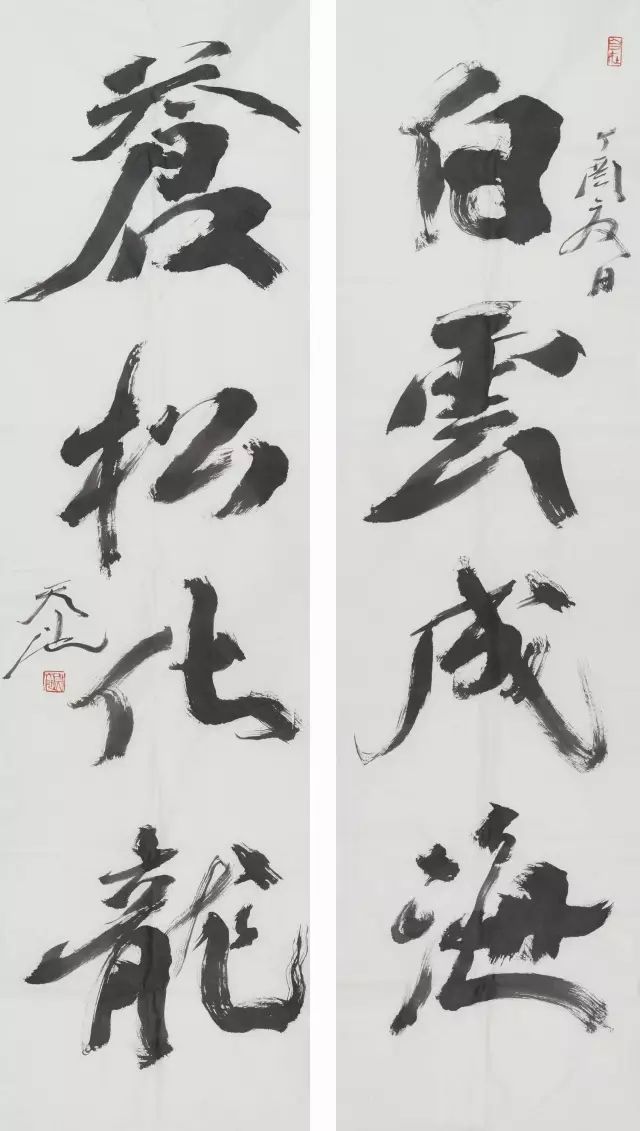 白雲成海
丁酉夏日
蒼松化龍